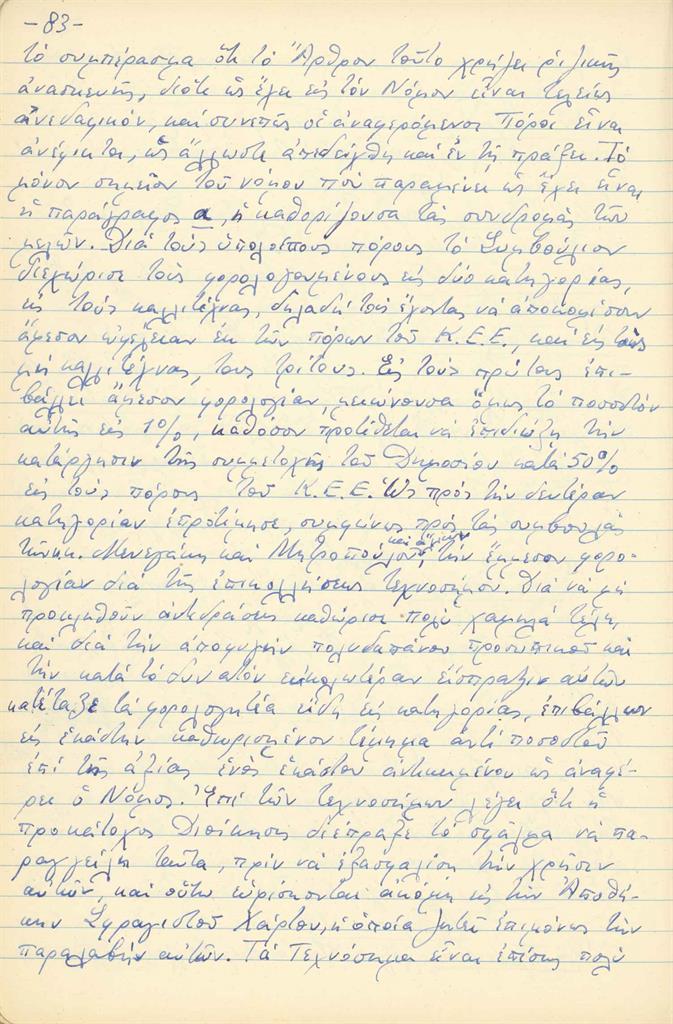 -83-
τὸ συμπέρασμα ὅτι τὸ Ἄρθρον τοῦτο χρήζει ριζικῆς
ἀνασκευῆς, διότι ὡς ἔχει εἰς τὸν Νόμον εἶναι τελείως
ἀνεδαφικόν, καὶ συνεπῶς οἱ ἀναφερόμενοι Πόροι εἶναι
ἀνέφικτοι, ὡς ἄλλωστε ἀπεδείχθη καὶ ἐν τῇ πράξει. Τὸ
μόνον σημεῖον τοῦ νόμου ποὺ παραμένει ὡς ἔχει εἶναι
ἡ παράγραφος α, ἡ καθορίζουσα τὰς συνδρομὰς τῶν
μελῶν. Διὰ τοὺς ὑπολοίπους πόρους τὸ Συμβούλιον
διεχώρισε τοὺς φορολογουμένους εἰς δύο κατηγορίας,
εἰς τοὺς καλλιτέχνας, δηλαδὴ τοὺς ἔχοντας νὰ ἀποκομίσουν
ἄμεσον ὠφέλειαν ἐκ τῶν πόρων τοῦ Κ.Ε.Ε., καὶ εἰς τοὺς
μὴ καλλιτέχνας, τοὺς τρίτους. Εἰς τοὺς πρώτους ἐπι-
βάλλει ἄμεσον φορολογίαν, μειώνουσα ὅμως τὸ ποσοστὸν
αὐτῆς εἰς 1%, καθόσον προτίθεται νὰ ἐπιδιώξῃ τὴν
κατάργησιν τῆς συμμετοχῆς τοῦ Δημοσίου κατὰ 50%
εἰς τοὺς πόρους τοῦ Κ.Ε.Ε. Ὡς πρὸς τὴν δευτέραν
κατηγορίαν ἐπροτίμησε, συμφώνως πρὸς τὰς συμβουλὰς
τῶν κκ. Μενεγάκη καὶ Μητροπούλου καὶ ἄλλων, τὴν ἔμμεσον φορο-
λογίαν διὰ τῆς ἐπικολλήσεως τεχνοσήμου. Διὰ νὰ μὴ
προκληθοῦν ἀντιδράσεις καθώρισε πολὺ χαμηλὰ τέλη,
καὶ διὰ τὴν ἀποφυγὴν πολυδαπάνου προσωπικοῦ καὶ
τὴν κατὰ τὸ δυνατὸν εὐκολωτέραν εἴσπραξιν αὐτῶν
κατέταξε τὰ φορολογητέα εἴδη εἰς κατηγορίας, ἐπιβάλλων
εἰς ἑκάστην καθωρισμένον τίμημα ἀντὶ ποσοστοῦ
ἐπὶ τῆς ἀξίας ἑνὸς ἑκάστου ἀντικειμένου ὡς ἀναφέ-
ρει ὁ Νόμος. Ἐπὶ τῶν τεχνοσήμων λέγει ὅτι ἡ
προκάτοχος Διοίκησις διέπραξε τὸ σφάλμα νὰ πα-
ραγγείλῃ ταῦτα, πρὶν νὰ ἐξασφαλίσῃ τὴν χρῆσιν
αὐτῶν, καὶ οὕτω εὑρίσκονται ἀκόμη εἰς τὴν Ἀποθή-
κην Σφραγιστοῦ Χάρτου, ἡ ὁποία ζητεῖ ἐπιμόνως τὴν
παραλαβὴν αὐτῶν. Τὰ Τεχνόσημα εἶναι ἐπίσης πολὺ